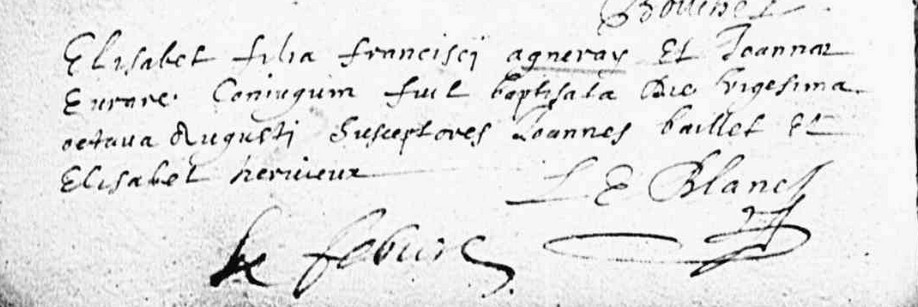 Elisabet filia francisci agneray Et Joannae
Eurare Coniugum fuit baptisata Die vigesima
octava Augusti Susceptores Joannes baillet Et
Elisabet herivieux
LE Blanc
Le febure